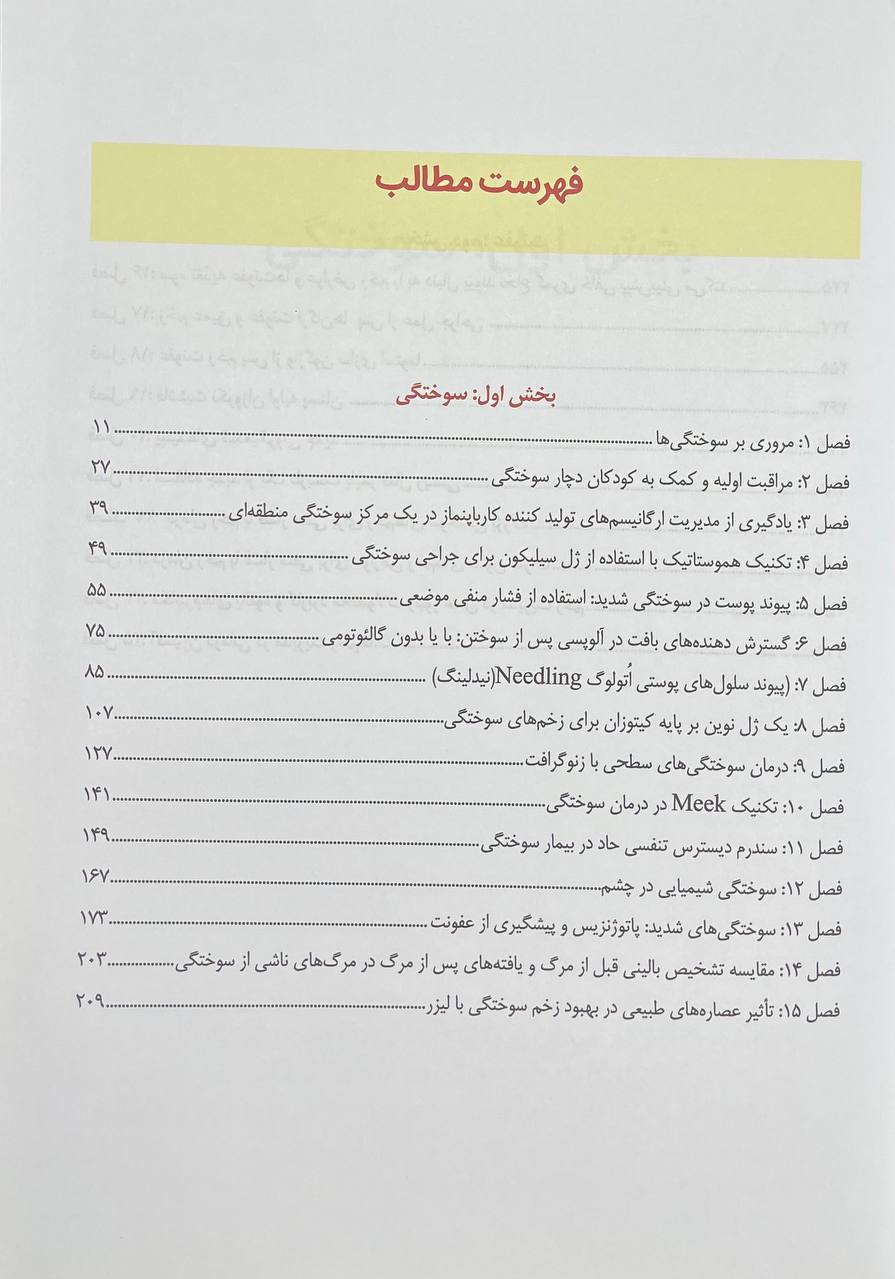 فهرست مطالب
بخش اول: سوختگی
فصل ۱: مروری بر سوختگی‌ها ........ ۱۱
فصل ۲: مراقبت اولیه و کمک به کودکان دچار سوختگی ........ ۲۷
فصل ۳: یادگیری از مدیریت ارگانیسم‌های تولید کننده کارباپنماز در یک مرکز سوختگی منطقه‌ای ........ ۳۹
فصل ۴: تکنیک هموستاتیک با استفاده از ژل سیلیکون برای جراحی سوختگی ........ ۴۹
فصل ۵: پیوند پوست در سوختگی شدید: استفاده از فشار منفی موضعی ........ ۵۵
فصل ۶: گسترش دهنده‌های بافت در آلوپسی پس از سوختن: با یا بدون گالئوتومی ........ ۷۵
فصل ۷: (پیوند سلول‌های پوستی اُتولوگ Needling(نیدلینگ) ........ ۸۵
فصل ۸: یک ژل نوین بر پایه کیتوزان برای زخم‌های سوختگی ........ ۱۰۷
فصل ۹: درمان سوختگی‌های سطحی با زنوگرافت ........ ۱۲۷
فصل ۱۰: تکنیک Meek در درمان سوختگی ........ ۱۴۱
فصل ۱۱: سندرم دیسترس تنفسی حاد در بیمار سوختگی ........ ۱۴۹
فصل ۱۲: سوختگی شیمیایی در چشم ........ ۱۶۷
فصل ۱۳: سوختگی‌های شدید: پاتوژنزیس و پیشگیری از عفونت ........ ۱۷۳
فصل ۱۴: مقایسه تشخیص بالینی قبل از مرگ و یافته‌های پس از مرگ در مرگ‌های ناشی از سوختگی ........ ۲۰۳
فصل ۱۵: تأثیر عصاره‌های طبیعی در بهبود زخم سوختگی با لیزر ........ ۲۰۹